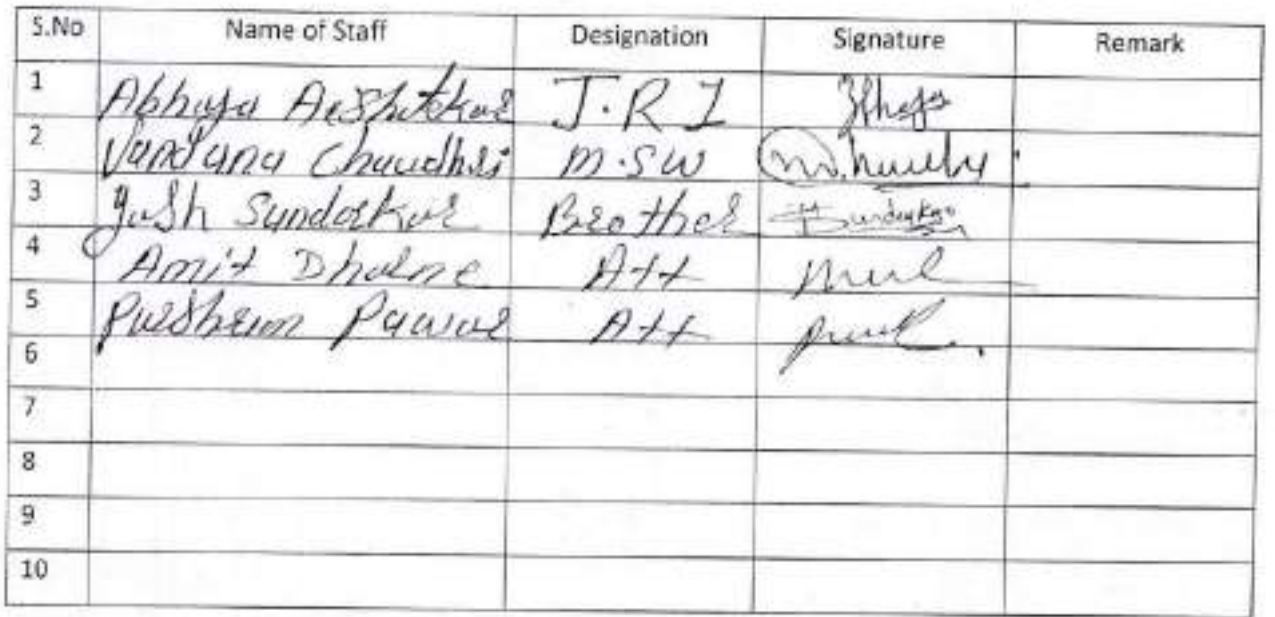 S.No Name of Staff Designation Signature Remark
1 Abhaya J.R I
2 Vandana Chaudhri M.SW
3 Yash Sundarkar Brother
4 Amit Dhalne Att
5 Pawar Att
6
7
8
9
10